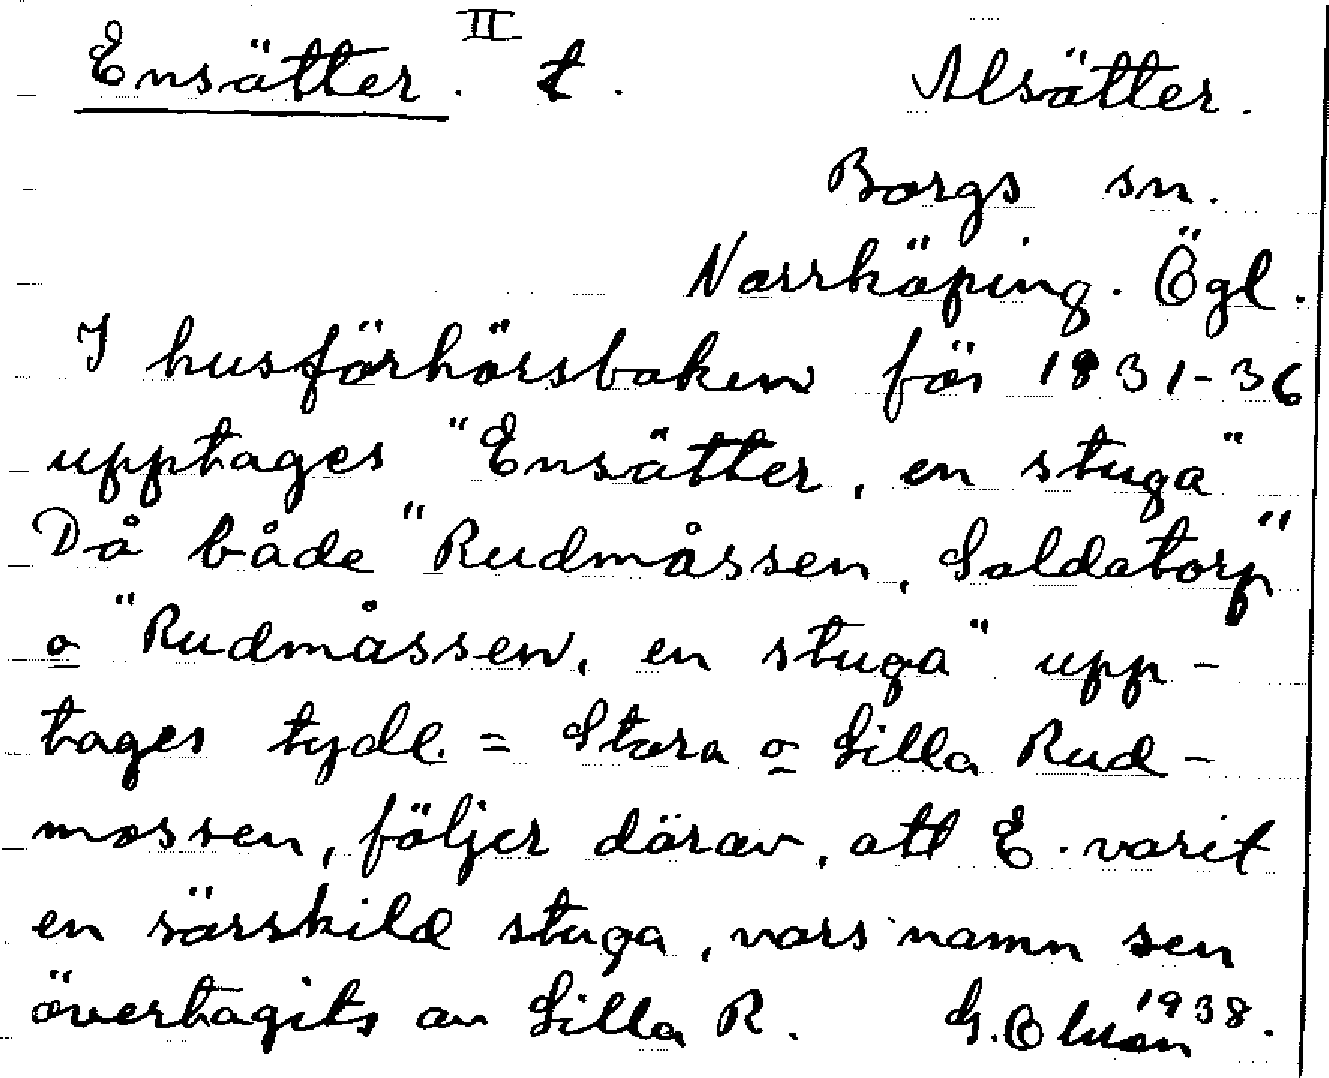 Ensätter. II t. Alsätter.
Borgs sn.
Norrköping. Ögl.
I husförhörsboken för 1831-36
upptages "Ensätter, en stuga"
Då både "Rudmåssen, Soldatorp"
o "Rudmåssen, en stuga" upp-
tages tydl. = Stora o Lilla Rud-
mossen, följer därav, att E. varit
en särskild stuga, vars namn sen
övertagits av Lilla R. G. Olson 1938.